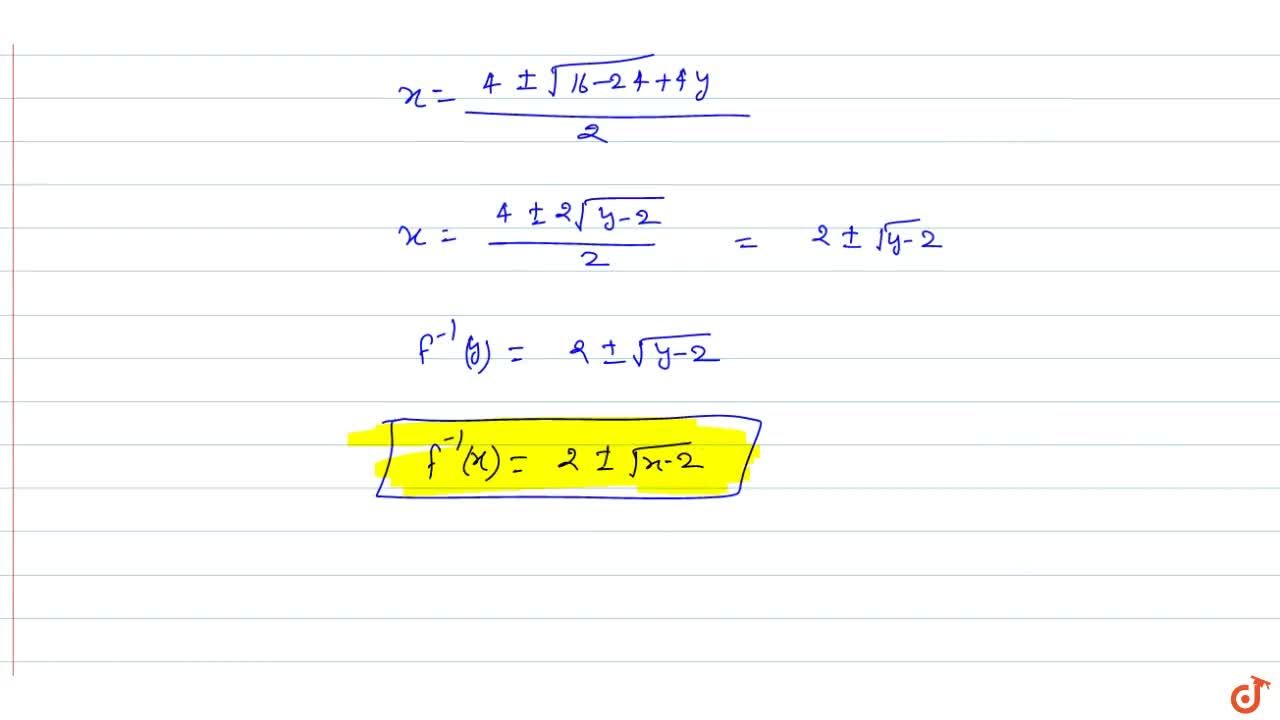 x = (4 ± √(16-24+4y))/2
x = (4 ± 2√(y-2))/2 = 2 ± √(y-2)
f⁻¹(y) = 2 ± √(y-2)
f⁻¹(x) = 2 ± √(x-2)